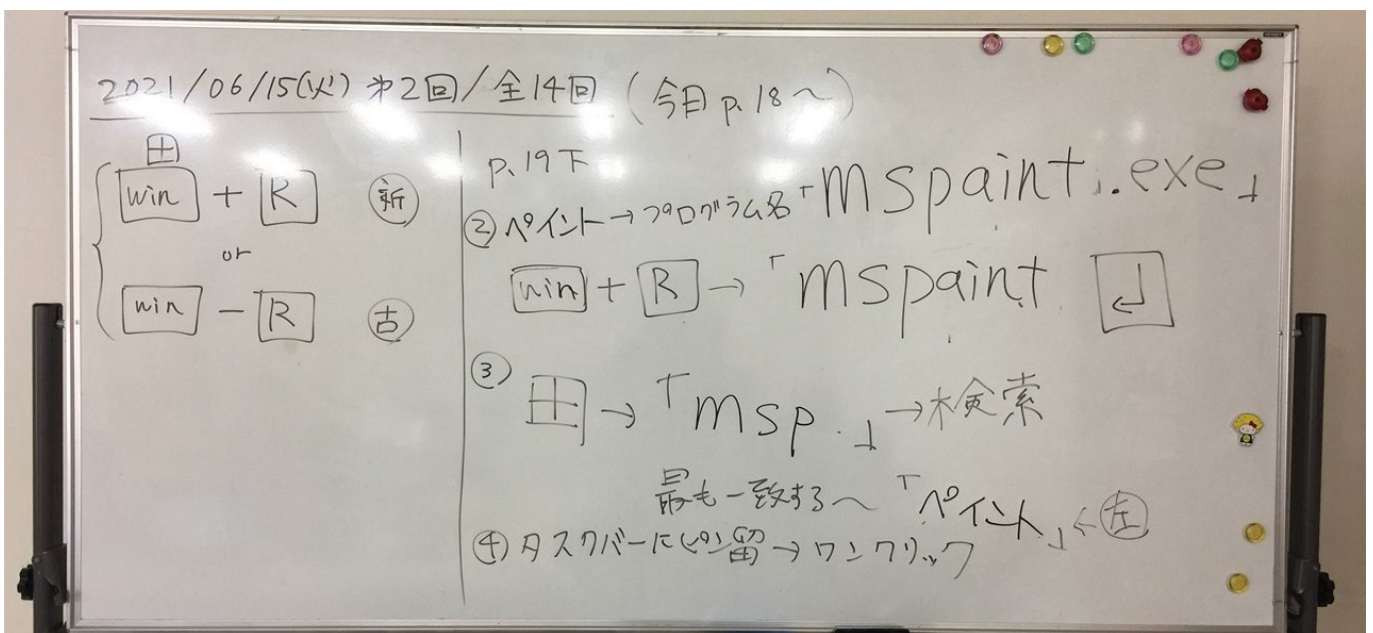 2021/06/15(火) 第2回/全14回 (今日 p.18〜)
田
win + R 新
or
win - R 古
p.19下
② ペイント→プログラム名「mspaint.exe」
win + R →「mspaint ↲
③ 田→「msp.」→検索
最も一致する〜「ペイント」←左
④ タスクバーにピン留→ワンクリック